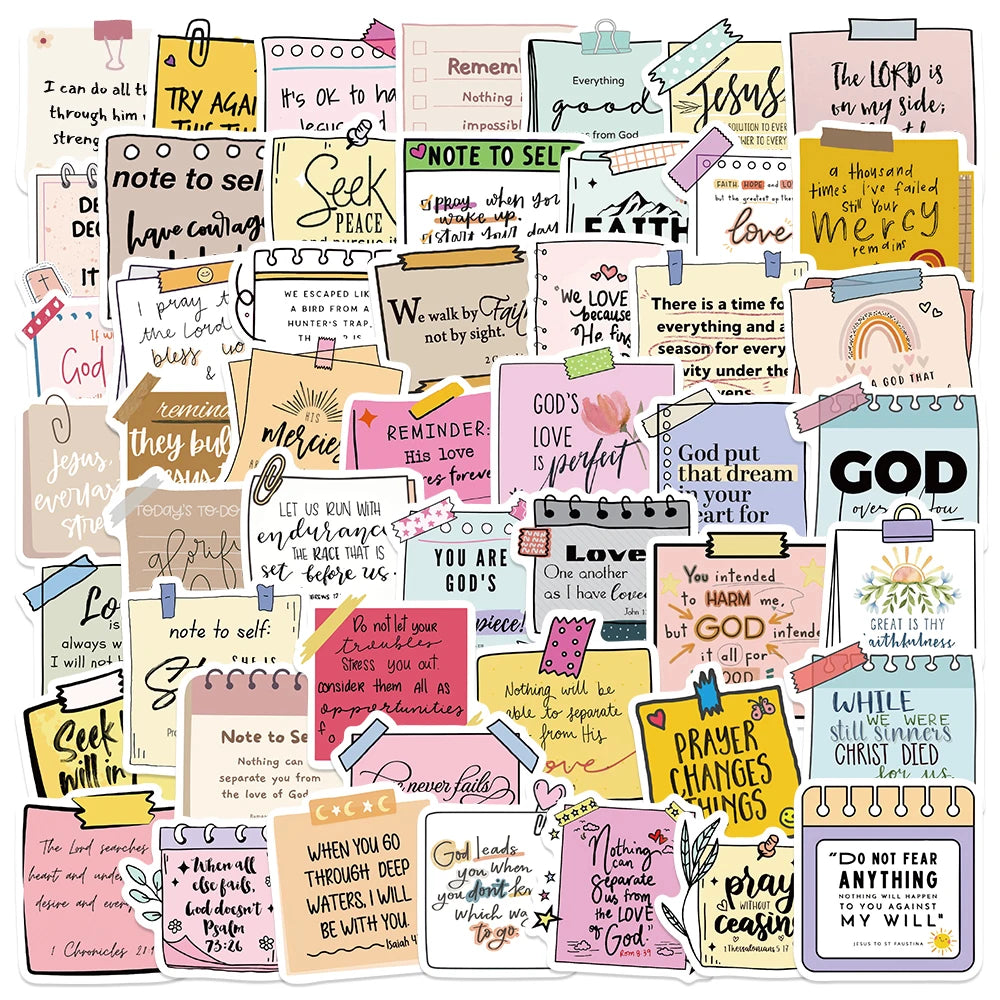 I can do all th
through him
streng
TRY AGAI
THIS TI
It's OK to ha
Jesus
Rememb
Nothing i
impossibl
Everything
good
es from God
Jesus
SOLUTION TO EVER
WER TO EVERY
The LORD is
on my side;
DE
DEC
IT
note to self
have courage
Seek
PEACE
and pursue it
NOTE TO SELF
pray when you
wake up.
start your day
FAITH
FAITH HOPE and LO
but the greatest of the
love
a thousand
times i've failed
Still Your
Mercy
remains
If w
God
I pray t
the Lord
bless yo
&
WE ESCAPED LIK
A BIRD FROM A
HUNTER'S TRAP.
We walk by Faith
not by sight.
2 Co
We LOVE
because
He firs
There is a time fo
everything and a
season for every
vity under the
vens.
A GOD THAT
Jesus,
everlas
stre
remind
they bul
Jesus t
HIS
mercies
REMINDER:
His love
res foreve
GOD'S
LOVE
IS perfect
God put
that dream
in your
heart for
GOD
over you
TODAY'S TO-DO
glorify
LET US RUN WITH
endurance
THE RACE THAT IS
set before us.
YOU ARE
GOD'S
piece!
Love
One another
as I have loved
John 1
You intended
to HARM me,
but GOD intende
it all for
OOD
GREAT IS THY
faithfulness
Lo
is
always w
I will not
note to self:
SHE IS
Do not let your
troubles
Stress you out.
consider them all as
opportunities
fo
Nothing will be
able to separate
from His
love
WHILE
WE WERE
still sinners
CHRIST DIED
for us
Seek
will in
Note to Se
Nothing can
separate you from
the love of God
e never fails
PRAYER
CHANGES
THINGS
The Lord searches
heart and unde
desire and every
1 Chronicles
When all
else fails,
God doesn't
Psalm
73:26
WHEN YOU GO
THROUGH DEEP
WATERS, I WILL
BE WITH YOU.
Isaiah 4
God leads
you when
you don't kn
which wa
to go.
Nothing
can
Separate
Us from
the LOVE
of God."
Rom 8:39
pray
WITHOUT
ceasin
1 Thessalonians 5:17
"DO NOT FEAR
ANYTHING
NOTHING WILL HAPPEN
TO YOU AGAINST
MY WILL"
JESUS TO ST FAUSTINA